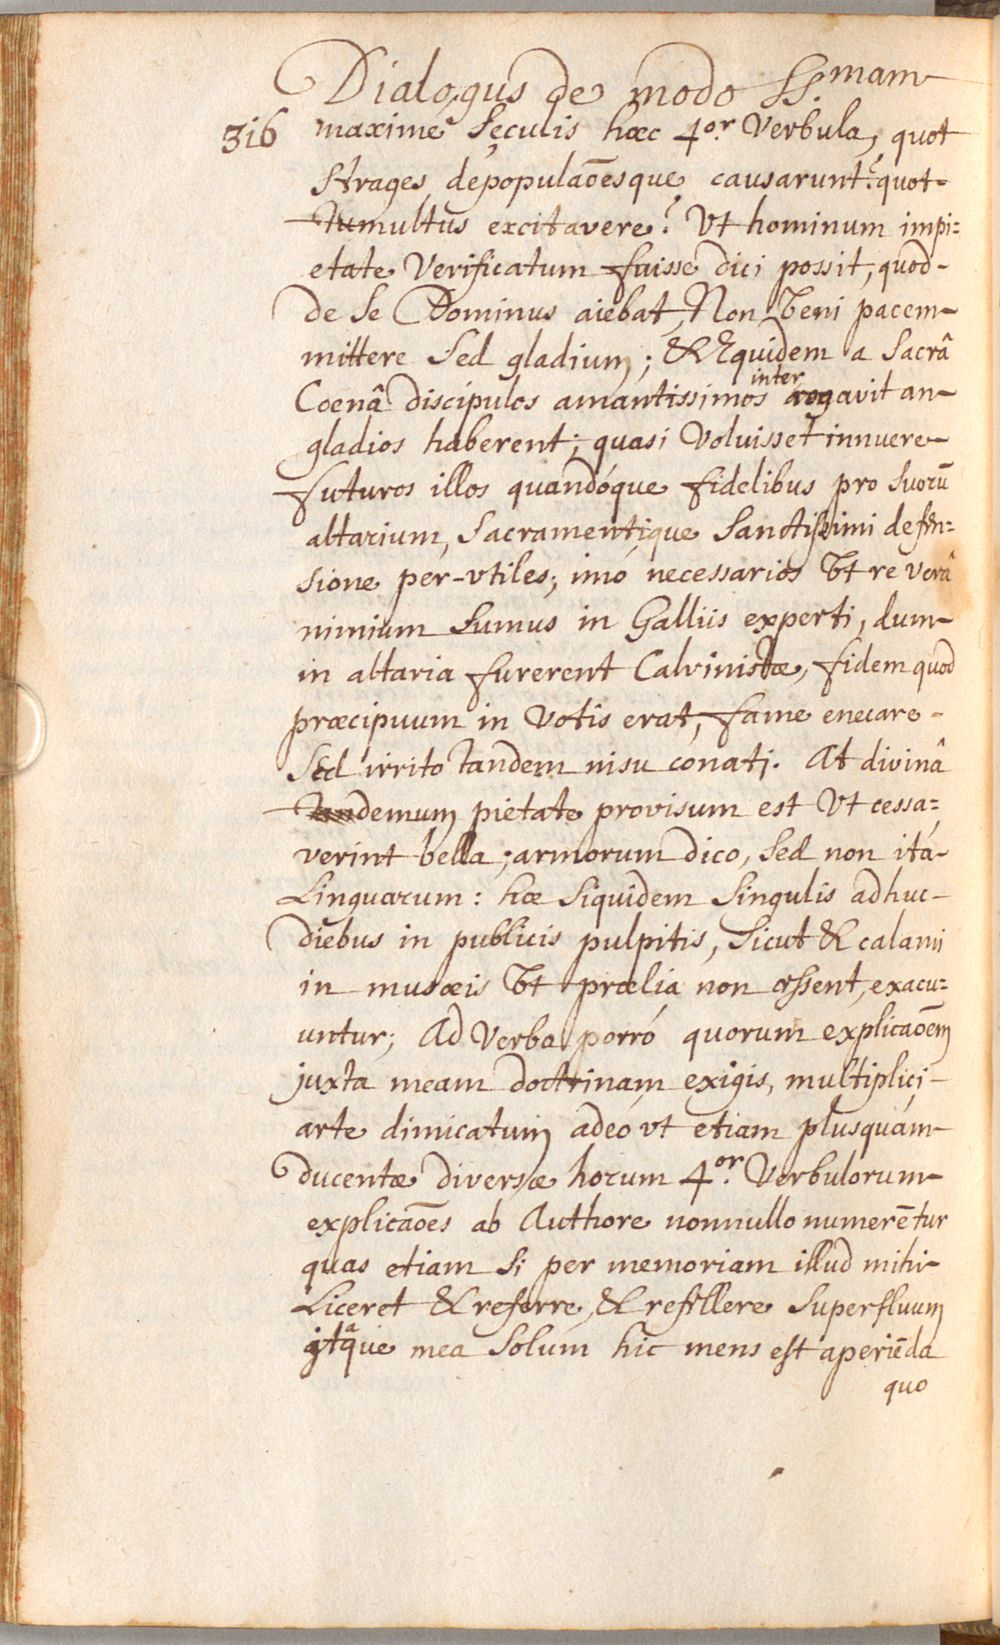 Dialogus de modo SS.mam
316 maximè Sęculis hæc 4or. Verbula, quot
Strages, depopulaõesque causarunt? quot-
tumultus excitavere? Vt hominum impi=
etate Verificatum fuisse dici possit, quod-
de Se Dominus aiebat, Non Veni pacem-
mittere Sed gladium; & Equidem a Sacrâ
Coenâ discipulos amantissimos interrogavit an-
gladios haberent; quasi Voluisset innuere-
futuros illos quandóque fidelibus pro Suorũ
altarium, Sacramentíque Sanctissimi defen=
sione per-vtiles; imó necessarios Vt re verâ
nimium Sumus in Galliis experti, dum-
in altaria furerent Calvinistæ, fidem quod
præcipuum in Votis erat, fame enecare-
Sed irrito tandem nisu conati. At divinâ
demum pietate provisum est Vt cessa=
verint bella; armorum dico, Sed non ita-
Linguarum: hæ Siquidem Singulis adhuc-
diebus in publicis pulpitis, Sicut & calami
in musæis Vt prælia non essent, exacu=
untur; Ad Verba porró quorum explicaõem
juxta meam doctrinam exigis, multiplici-
arte dimicatum adeó vt etiam plusquám-
ducentæ diversæ horum 4or. Verbulorum-
explicaões ab Authore nonnullo numerẽtur
quas etiam Si per memoriam illud mihi-
Liceret & referre, & refellere Superfluum
itaque mea Solum hic mens est aperiẽda
quo